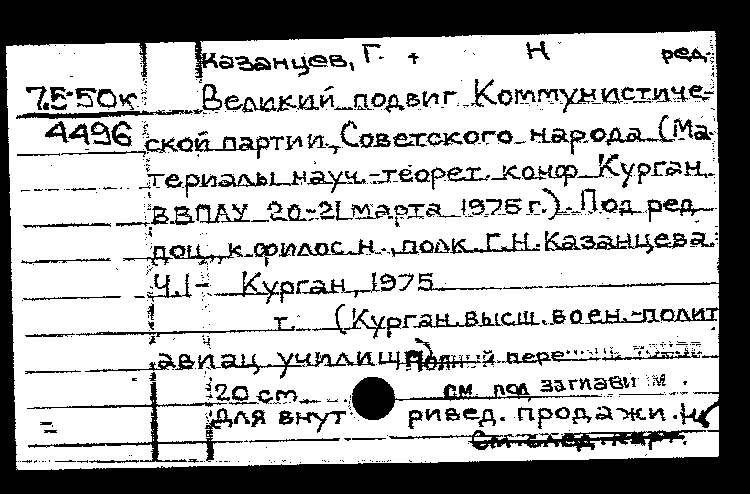 Казанцев, Г. + Н ред.
75-50к Великий подвиг Коммунистиче-
4496 ской партии, Советского народа (Ма-
териалы науч.-теорет. конф. Курган.
ВВПАУ 20-21 марта 1975 г.). Под ред.
доц., к. филос. н., полк. Г.Н. Казанцева.
Ч.1- Курган, 1975
т. (Курган. высш. воен.-полит.
авиац. училище) Полный перечень томов
20 см. см. под заглавием.
Для внутривед. продажи.
См. след. карт.